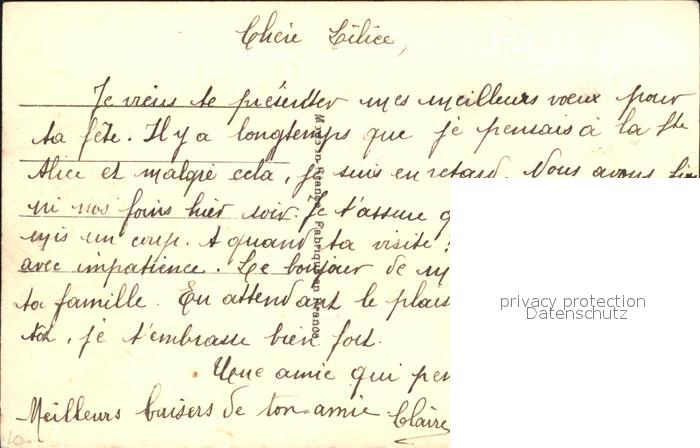 Chère Lilice,
Je viens te présenter mes meilleurs voeux pour
ta fête. Il y a longtemps que je pensais à la Ste
Alice et malgré cela, je suis en retard. Nous avons fi
ni nos foins hier soir. Je t'assure q
mis un coup. A quand ta visite?
avec impatience. Le bonjour de m
ta famille. En attendant le plais
tôt, je t'embrasse bien fort.
Une amie qui pen
Meilleurs baisers de ton amie Claire
Made in France Fabriqué en France
privacy protection
Datenschutz